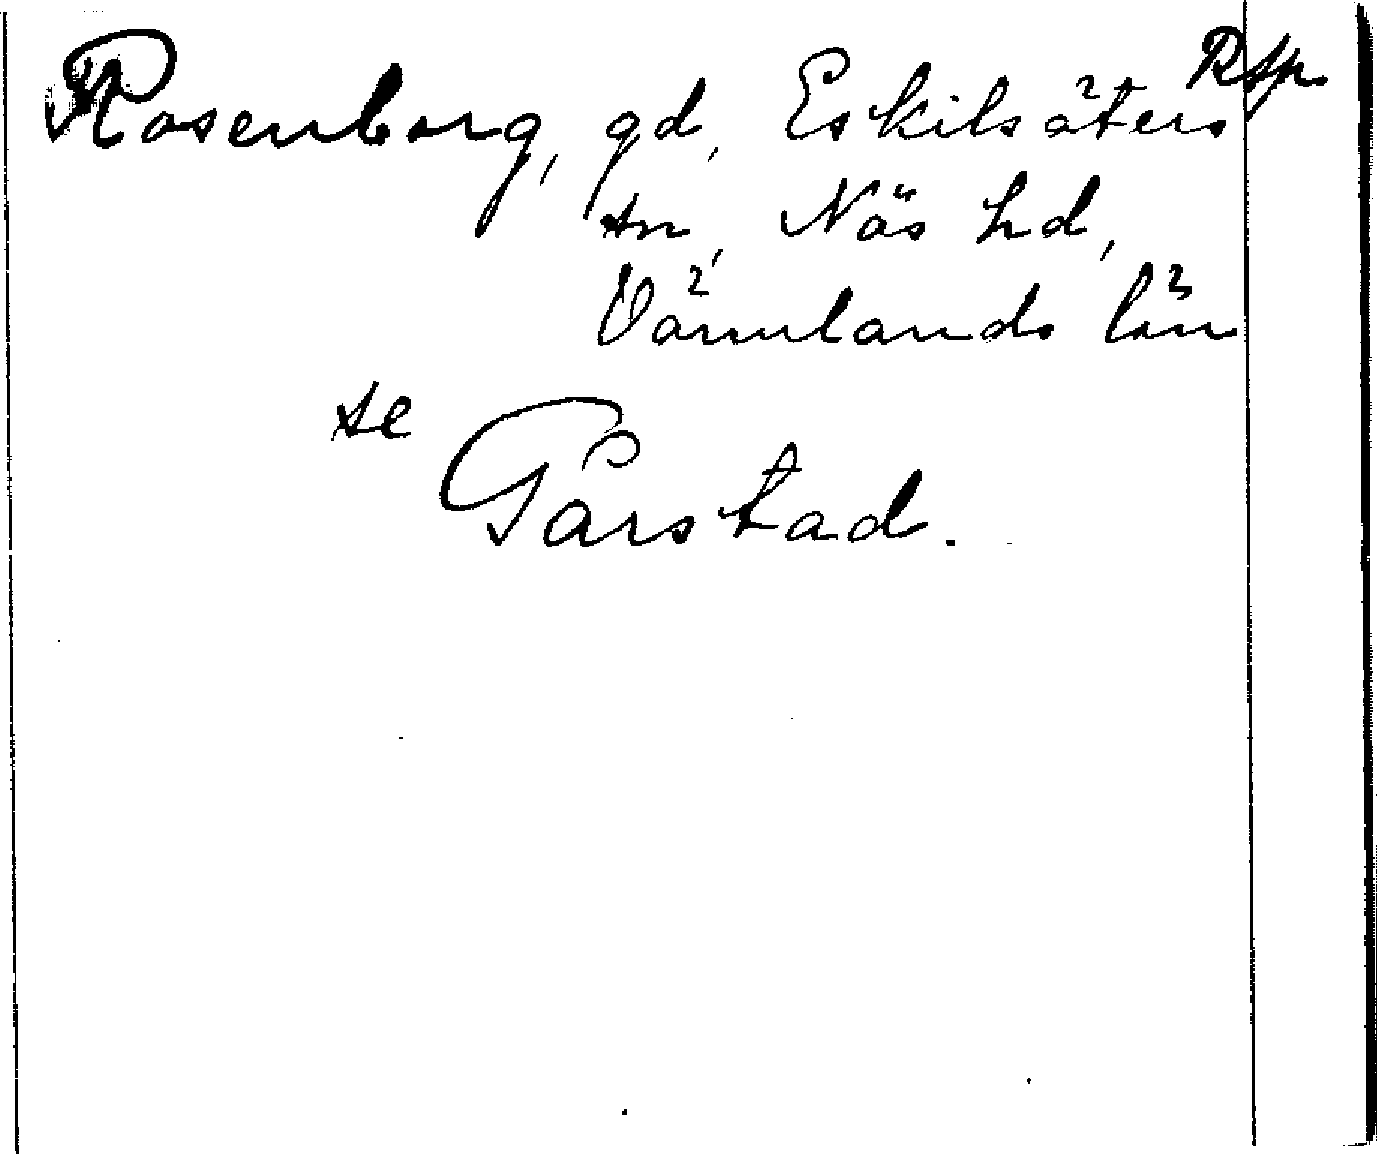 Rosenborg, gd, Eskilsäters Rsp.
sn, Näs hd,
Värmlands län
se Gårstad.